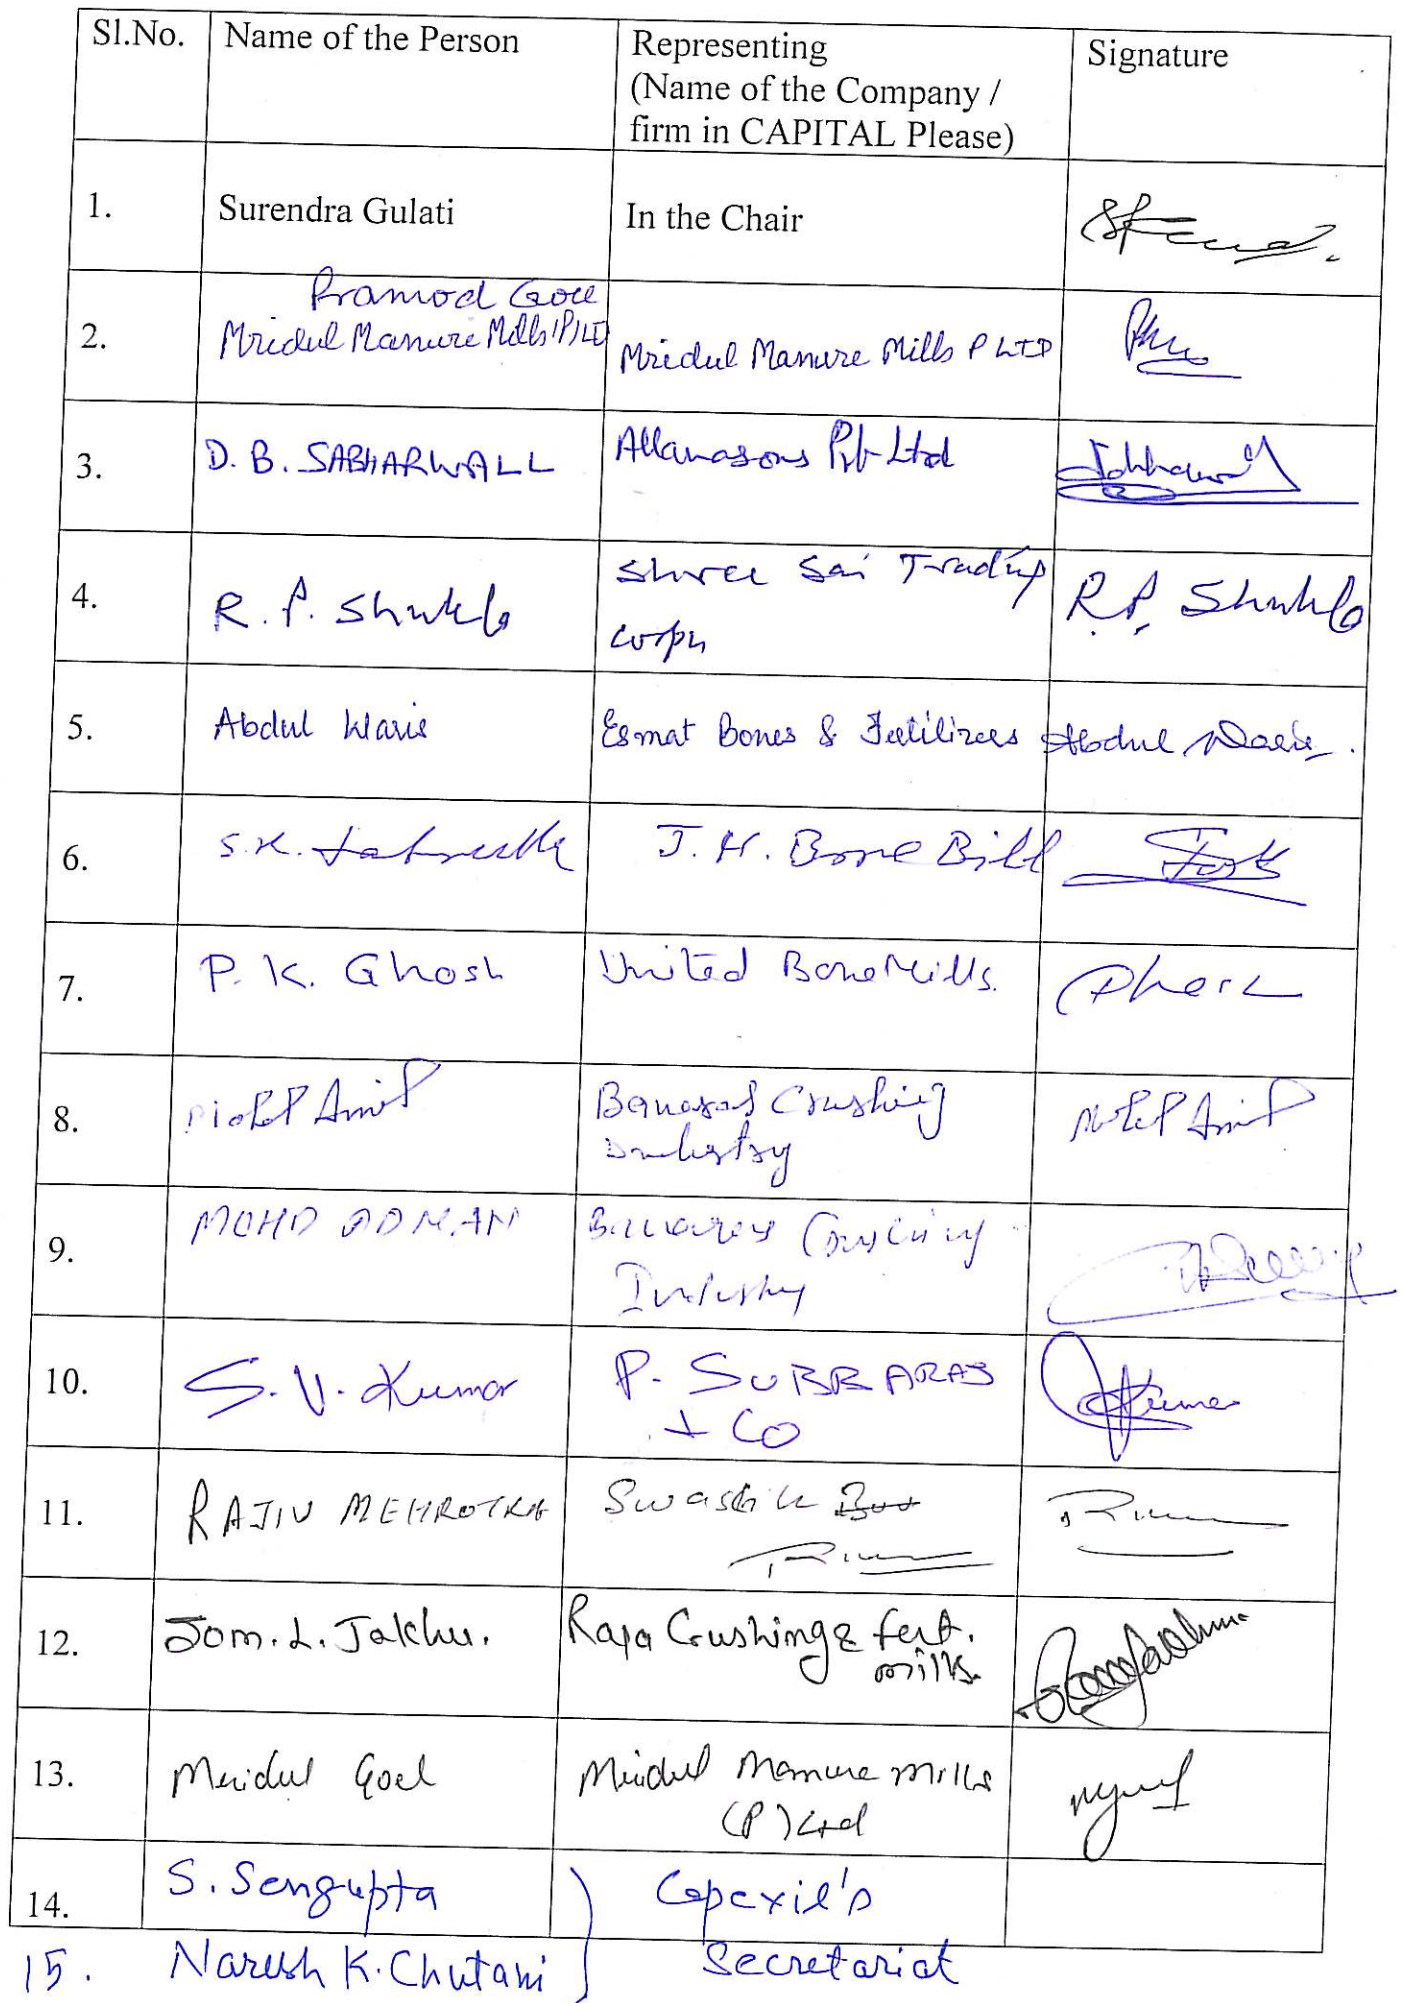 Sl.No. Name of the Person Representing Signature
(Name of the Company /
firm in CAPITAL Please)
1. Surendra Gulati In the Chair
Pramod Goel
2. Mridul Manure Mills (P) LTD Mridul Manure Mills P LTD
3. D. B. SABHARWALL Allanasons Pvt Ltd
4. R. P. Shukla Shree Sai Trading R. P. Shukla
Corpn
5. Abdul Waris Esmat Bones & Fertilizers Abdul Waris.
6. S.K. J. H. Bone Bill
7. P. K. Ghosh United Bone Mills. Ghosh
8. Banaras Crushing
Industry
9. MOHD ADNAN Banaras Crushing
Industry
10. S. V. Kumar P. SUBBARAJ
+ CO
11. RAJIV MEHROTRA Swastik
12. Som. L. Jakhu. Raja Crushing & fert.
mills.
13. Mridul Goel Mridul Manure Mills
(P) Ltd
14. S. Sengupta Capexil's
15. Naresh K. Chutani Secretariat